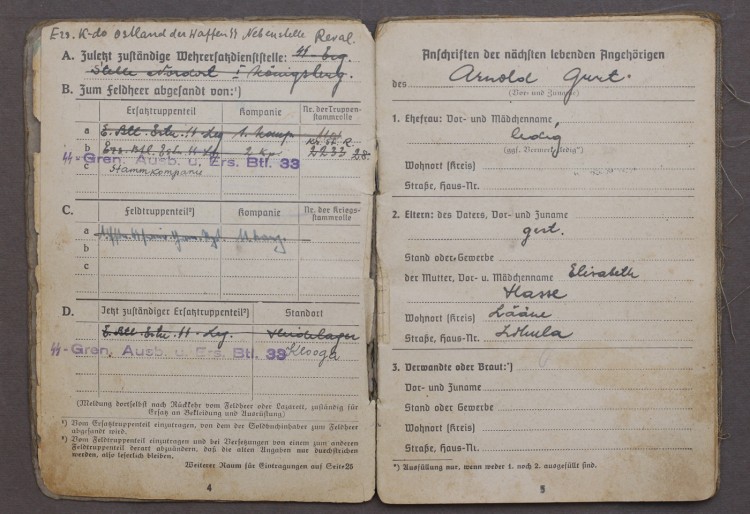 Ers. K-do Ostland der Waffen SS Nebenstelle Reval.
A. Zuletzt zuständige Wehrersatzdienststelle: SS-Erg.
Stelle Nordost I Königsberg.
B. Zum Feldheer abgesandt von:¹)
Ersatztruppenteil Kompanie Nr. der Truppen-stammrolle
a E. Btl. Estn. SS Leg 1. Komp.
b Ers. Btl. Estn. SS Leg 2 Kp. 2233
SS-Gren. Ausb. u. Ers. Btl. 33
c Stammkompanie
C. Feldtruppenteil²) Kompanie Nr. der Kriegs-stammrolle
a
b
c
D. Jetzt zuständiger Ersatztruppenteil²) Standort
E. Btl. Estn. SS-Leg. Heidelager
SS-Gren. Ausb. u. Ers. Btl. 33 Klooga
(Meldung dortselbst nach Rückkehr vom Feldheer oder Lazarett, zuständig für
Ersatz an Bekleidung und Ausrüstung)
¹) Vom Ersatztruppenteil einzutragen, von dem der Soldbuchinhaber zum Feldheer
abgesandt wird.
²) Vom Feldtruppenteil einzutragen und bei Versetzungen von einem zum anderen
Feldtruppenteil derart abzuändern, daß die alten Angaben nur durchstrichen
werden, also leserlich bleiben.
Weiterer Raum für Eintragungen auf Seite 25
4
Anschriften der nächsten lebenden Angehörigen
des Arnold Gert.
(Vor- und Zuname)
1. Ehefrau: Vor- und Mädchenname
ledig
(ggf. Vermerk „ledig")
Wohnort (Kreis)
Straße, Haus-Nr.
2. Eltern: des Vaters, Vor- und Zuname
gert.
Stand oder Gewerbe
der Mutter, Vor- u. Mädchenname Elisabeth
Hasse
Wohnort (Kreis) Lääne
Straße, Haus-Nr.
3. Verwandte oder Braut:*)
Vor- und Zuname
Stand oder Gewerbe
Wohnort (Kreis)
Straße, Haus-Nr.
*) Ausfüllung nur, wenn weder 1. noch 2. ausgefüllt sind.
5